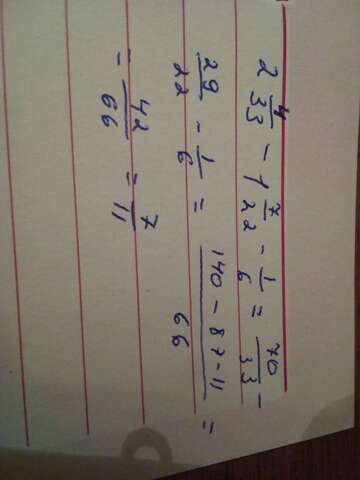 2 4/33 - 1 7/22 - 1/6 = 70/33 -
29/22 - 1/6 = (140 - 87 - 11)/66 =
= 42/66 = 7/11